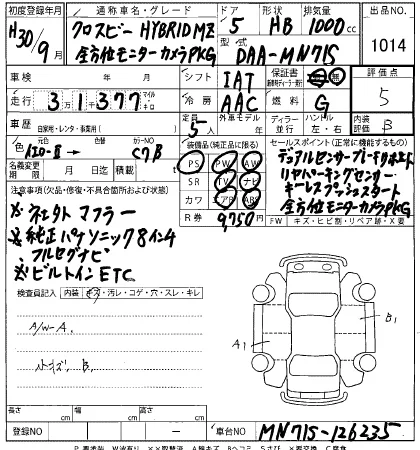 初度登録年月 通称車名・グレード ドア 形状 排気量 出品NO.
H30/9月 クロスビー HYBRID MZ 5 HB 1000cc
全方位モニターカメラPKG 型式 DAA-MN71S 1014
車検 シフト IAT 保証書 有 無 評価点
走行 31377 マイル キロ 冷房 AAC 燃料 G 5
車歴 自家用・レンタ・事業用( ) 定員 5人 外車モデル 年 ディーラー 並行 ハンドル 左・右 内装評価 B
色 → カラーNO C7B 装備品(純正品に限る) セールスポイント(正常に機能するもの)
名義変更期限 月 日 積載 PS PW AW デュアルセンサーブレーキサポート
注意事項(欠品・修復・不具合箇所および状態) SR TV ナビ リヤパーキングセンサー
※ネクトマフラー カワ エアB ABS キーレスプッシュスタート
※純正パナソニック8インチ R券 9,750円 全方位モニターカメラPKG
フルセグナビ FW キズ・ヒビ割・リペア跡・X要
※ビルトインETC
検査員記入 内装 キズ・汚レ・コゲ・穴・スレ・キレ
A/W-A
B1
A1
B
長さ cm 幅 cm 高さ cm
登録NO ー 車台NO MN71S-126235